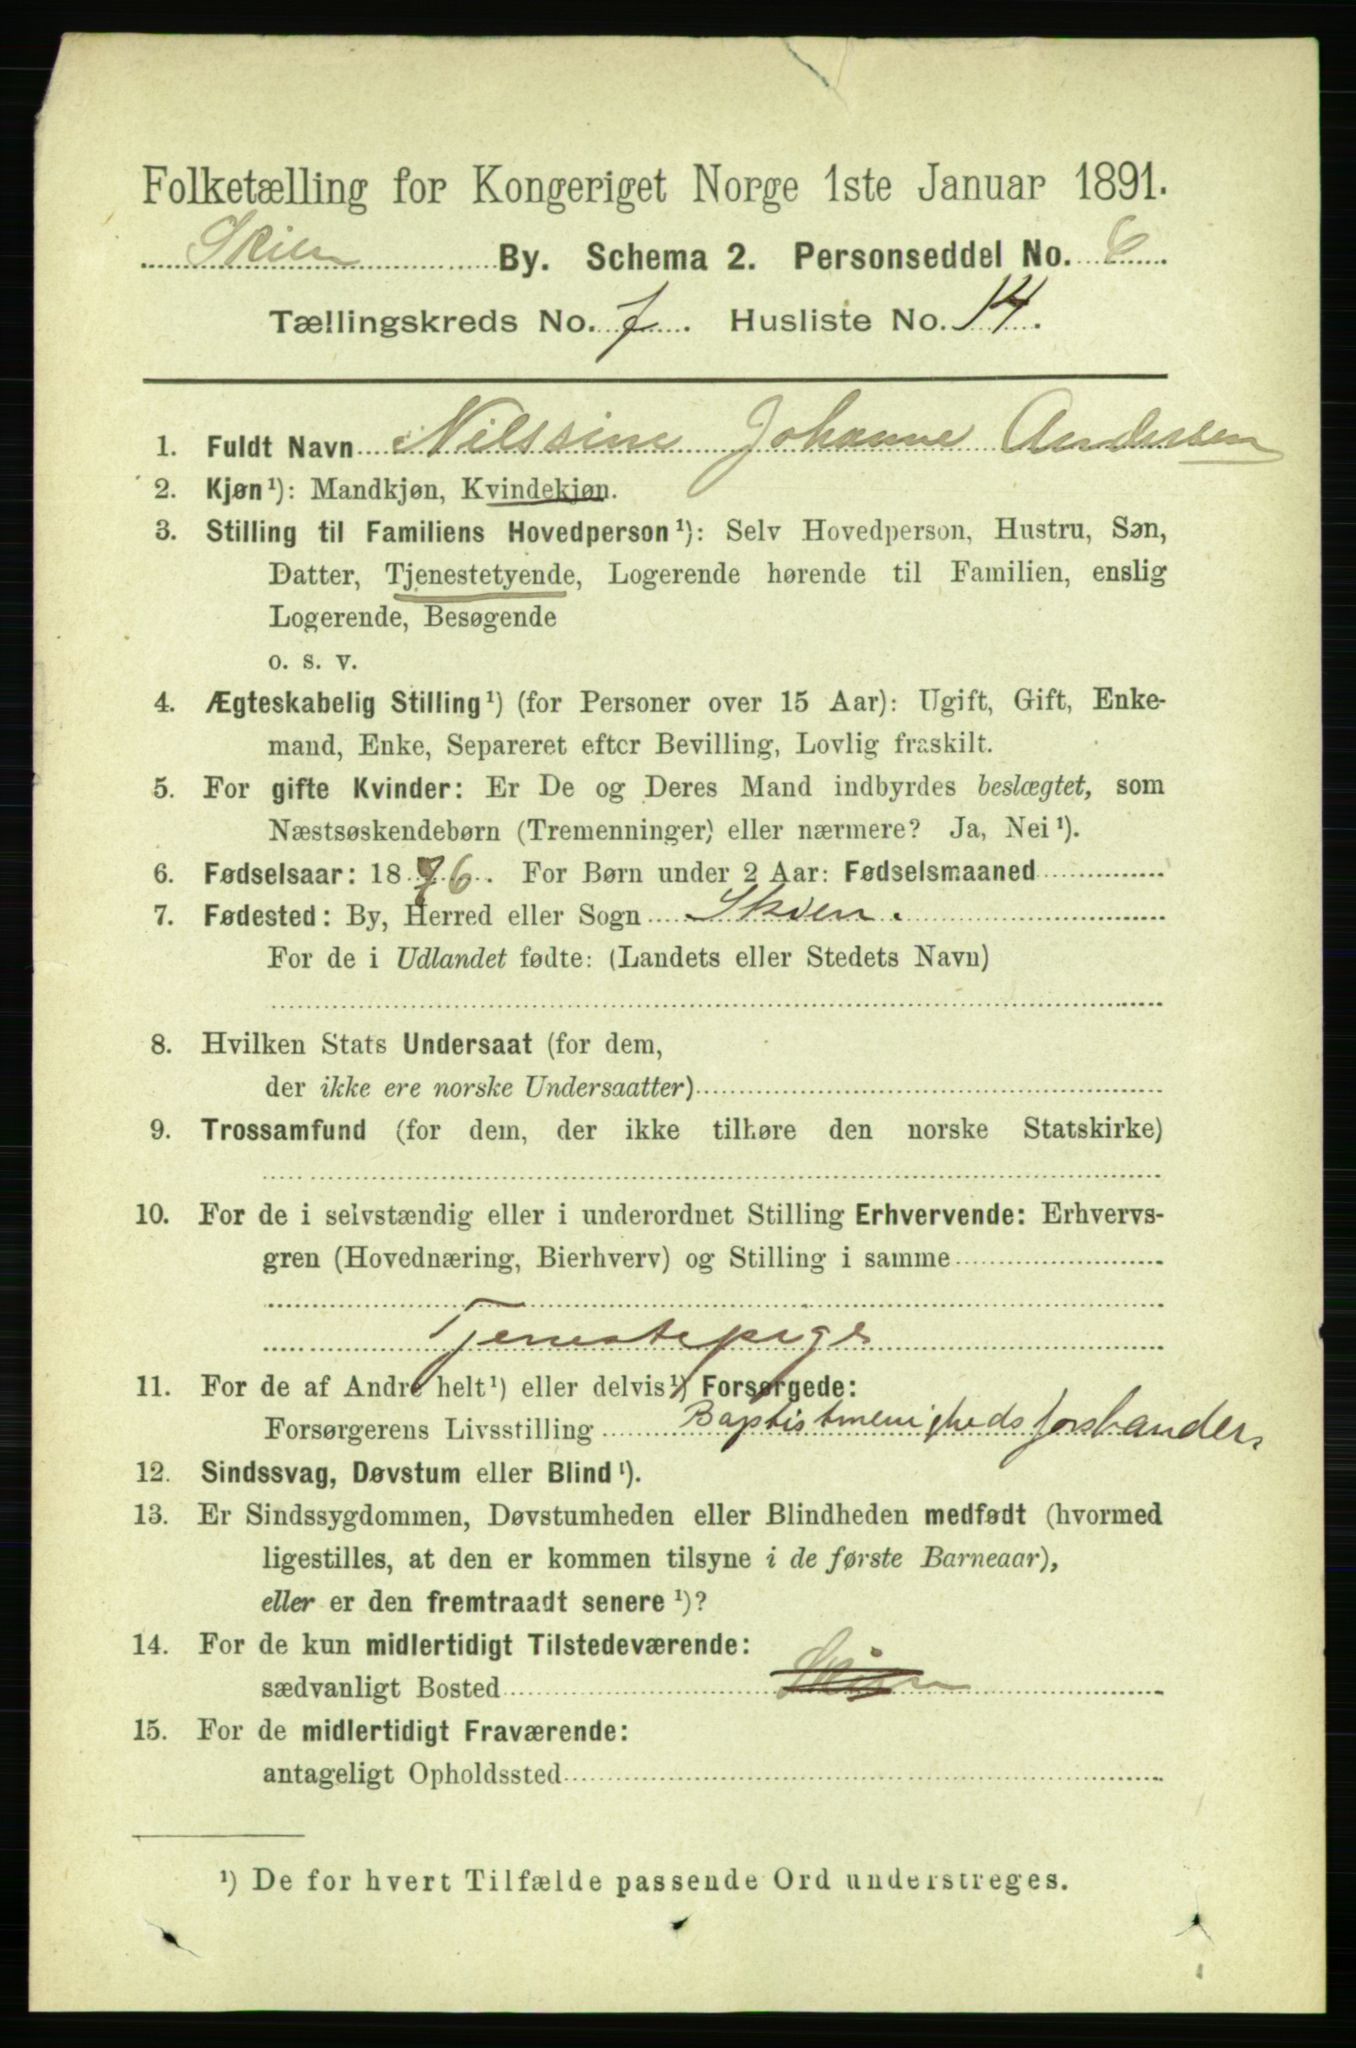 Folketælling for Kongeriget Norge 1ste Januar 1891.
Skien By. Schema 2. Personseddel No. 6
Tællingskreds No. 7. Husliste No. 14.
1. Fuldt Navn Nilssine Johanne Andersen
2. Kjøn¹): Mandkjøn, Kvindekjøn.
3. Stilling til Familiens Hovedperson¹): Selv Hovedperson, Hustru, Søn,
Datter, Tjenestetyende, Logerende hørende til Familien, enslig
Logerende, Besøgende
o. s. v.
4. Ægteskabelig Stilling¹) (for Personer over 15 Aar): Ugift, Gift, Enke-
mand, Enke, Separeret efter Bevilling, Lovlig fraskilt.
5. For gifte Kvinder: Er De og Deres Mand indbyrdes beslægtet, som
Næstsøskendebørn (Tremenninger) eller nærmere? Ja, Nei¹).
6. Fødselsaar: 1876. For Børn under 2 Aar: Fødselsmaaned
7. Fødested: By, Herred eller Sogn Skien.
For de i Udlandet fødte: (Landets eller Stedets Navn)
8. Hvilken Stats Undersaat (for dem,
der ikke ere norske Undersaatter)
9. Trossamfund (for dem, der ikke tilhøre den norske Statskirke)
10. For de i selvstændig eller i underordnet Stilling Erhvervende: Erhvervs-
gren (Hovednæring, Bierhverv) og Stilling i samme
Tjenestepige
11. For de af Andre helt¹) eller delvis¹) Forsørgede:
Forsørgerens Livsstilling Baptistmenigheds forstander.
12. Sindssvag, Døvstum eller Blind¹).
13. Er Sindssygdommen, Døvstumheden eller Blindheden medfødt (hvormed
ligestilles, at den er kommen tilsyne i de første Barneaar),
eller er den fremtraadt senere¹)?
14. For de kun midlertidigt Tilstedeværende:
sædvanligt Bosted Skien
15. For de midlertidigt Fraværende:
antageligt Opholdssted
¹) De for hvert Tilfælde passende Ord understreges.